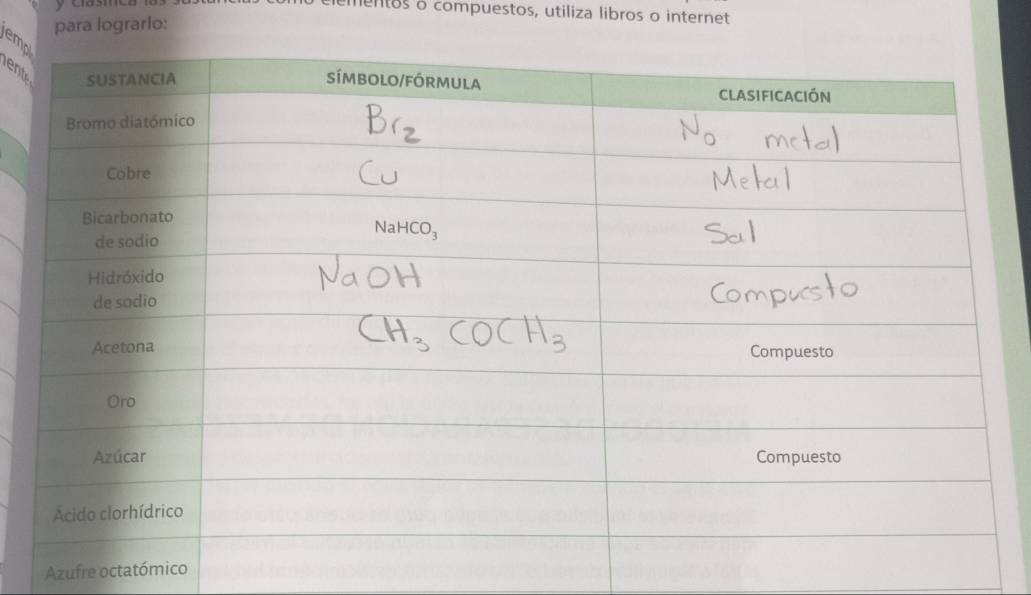 elementos o compuestos, utiliza libros o internet
para lograrlo:
SUSTANCIA SÍMBOLO/FÓRMULA CLASIFICACIÓN
Bromo diatómico Br₂ No metal
Cobre Cu Metal
Bicarbonato
de sodio NaHCO₃ Sal
Hidróxido
de sodio NaOH Compuesto
Acetona CH₃ COCH₃ Compuesto
Oro
Azúcar Compuesto
Ácido clorhídrico
Azufre octatómico